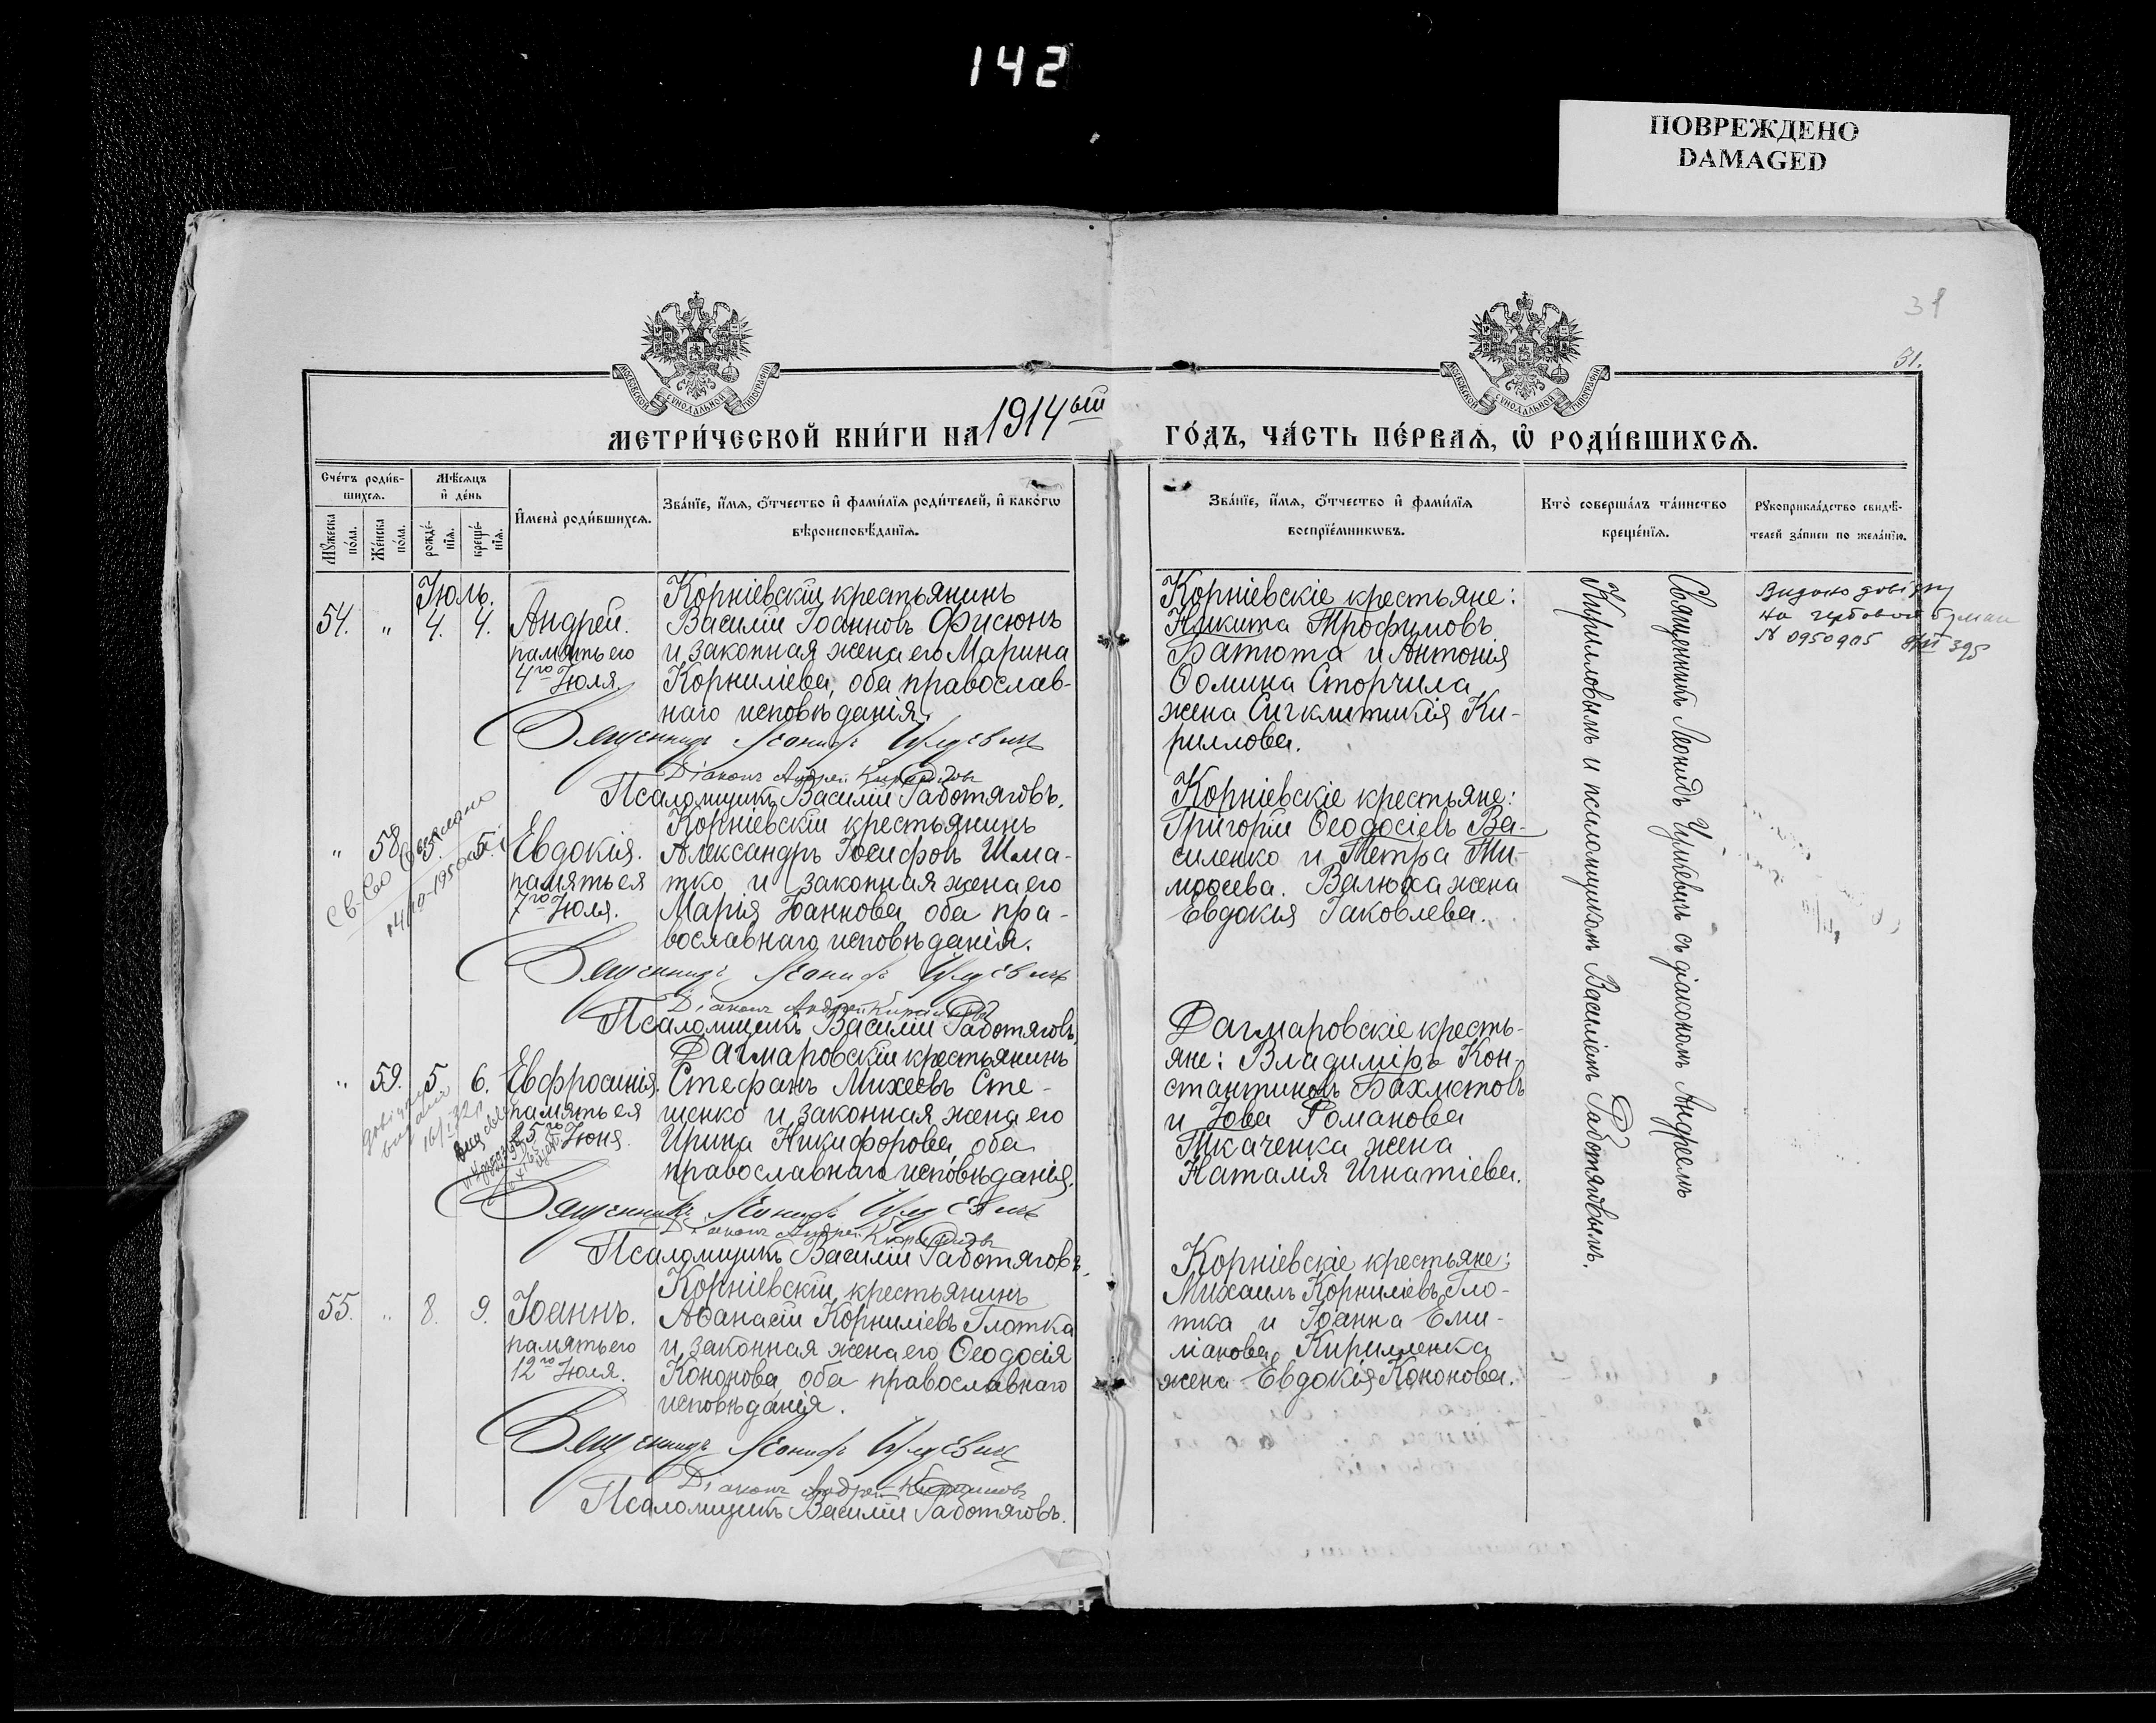 142
ПОВРЕЖДЕНО
DAMAGED
31
31.
МОСКОВСКОЙ СѴНОДАЛЬНОЙ ТИПОГРАФІИ
МОСКОВСКОЙ СѴНОДАЛЬНОЙ ТИПОГРАФІИ
МЕТРИ́ЧЕСКОЙ КНИ́ГИ НА 1914ый
ГО́ДЪ, ЧА́СТЬ ПЕ́РВАѦ, Ѡ҆ РОДИ́ВШИХСѦ.
Сче́тъ роди́в-
шихсѧ.
Мꙋ́жеска по́ла.
Же́нска по́ла.
Мѣ́сѧцъ
и҆ де́нь
рожде́-
нїѧ.
креще́-
нїѧ.
И҆мена̀ роди́вшихсѧ.
Зва́нїе, и҆́мѧ, ѻ҆́тчество и҆ фами́лїѧ роди́телей, и҆ како́гѡ
вѣроисповѣ́данїѧ.
Зва́нїе, и҆́мѧ, ѻ҆́тчество и҆ фами́лїѧ
воспрїе́мникѡвъ.
Кто̀ соверша́лъ та́инство
креще́нїѧ.
Рꙋкоприкла́дство свидѣ́-
телей за́писи по жела́нїю.
Іюль.
54. " 4. 4.
Андрей.
память его
4го Іюля.
Корніевскій крестьянинъ
Василій Іоанновъ Фисюнъ
и законная жена его Марина
Корниліева, оба православ-
наго исповѣданія.
Священникъ Леонидъ
Діаконъ Андрей Кирилловъ
Псаломщикъ Василій Работяговъ.
Корніевскіе крестьяне:
Никита Трофимовъ
Батюта и Антонія
Ѳомина Сторчила
жена Сигклитикія Ки-
риллова.
Священникъ Леонидъ съ діакономъ Андреемъ
Кирилловымъ и псаломщикомъ Василіемъ Работяговымъ.
на
№ 0950905 395
" 58. 5. 5.
Евдокія.
память ея
7го Іюля.
Корніевскій крестьянинъ
Александръ Іосифовъ Шма-
тко и законная жена его
Марія Іоаннова, оба пра-
вославнаго исповѣданія.
Священникъ Леонидъ
Діаконъ Андрей Кирилловъ
Псаломщикъ Василій Работяговъ.
Корніевскіе крестьяне:
Григорій Ѳеодосіевъ Ва-
силенко и Петра Ти-
моѳеева. Валюха жена
Евдокія Іаковлева.
" 59. 5. 6.
Евфросинія.
память ея
25го Іюня.
Дагмаровскій крестьянинъ
Стефанъ Михеевъ Сте-
ценко и законная жена его
Ирина Никифорова, оба
православнаго исповѣданія.
Священникъ Леонидъ
Діаконъ Андрей Кирилловъ
Псаломщикъ Василій Работяговъ.
Дагмаровскіе кресть-
яне: Владиміръ Кон-
стантиновъ Бахметовъ
и Іова Романова
Ткаченка жена
Наталія Игнатіева.
55. " 8. 9.
Іоаннъ.
память его
12го Іюля.
Корніевскій крестьянинъ
Аѳанасій Корниліевъ Глотка
и законная жена его Ѳеодосія
Кононова, оба православнаго
исповѣданія.
Священникъ Леонидъ
Діаконъ Андрей Кирилловъ
Псаломщикъ Василій Работяговъ.
Корніевскіе крестьяне:
Михаилъ Корниліевъ Гло-
тка и Іоанна Еми-
ліанова Кирилленка
жена Евдокія Кононова.